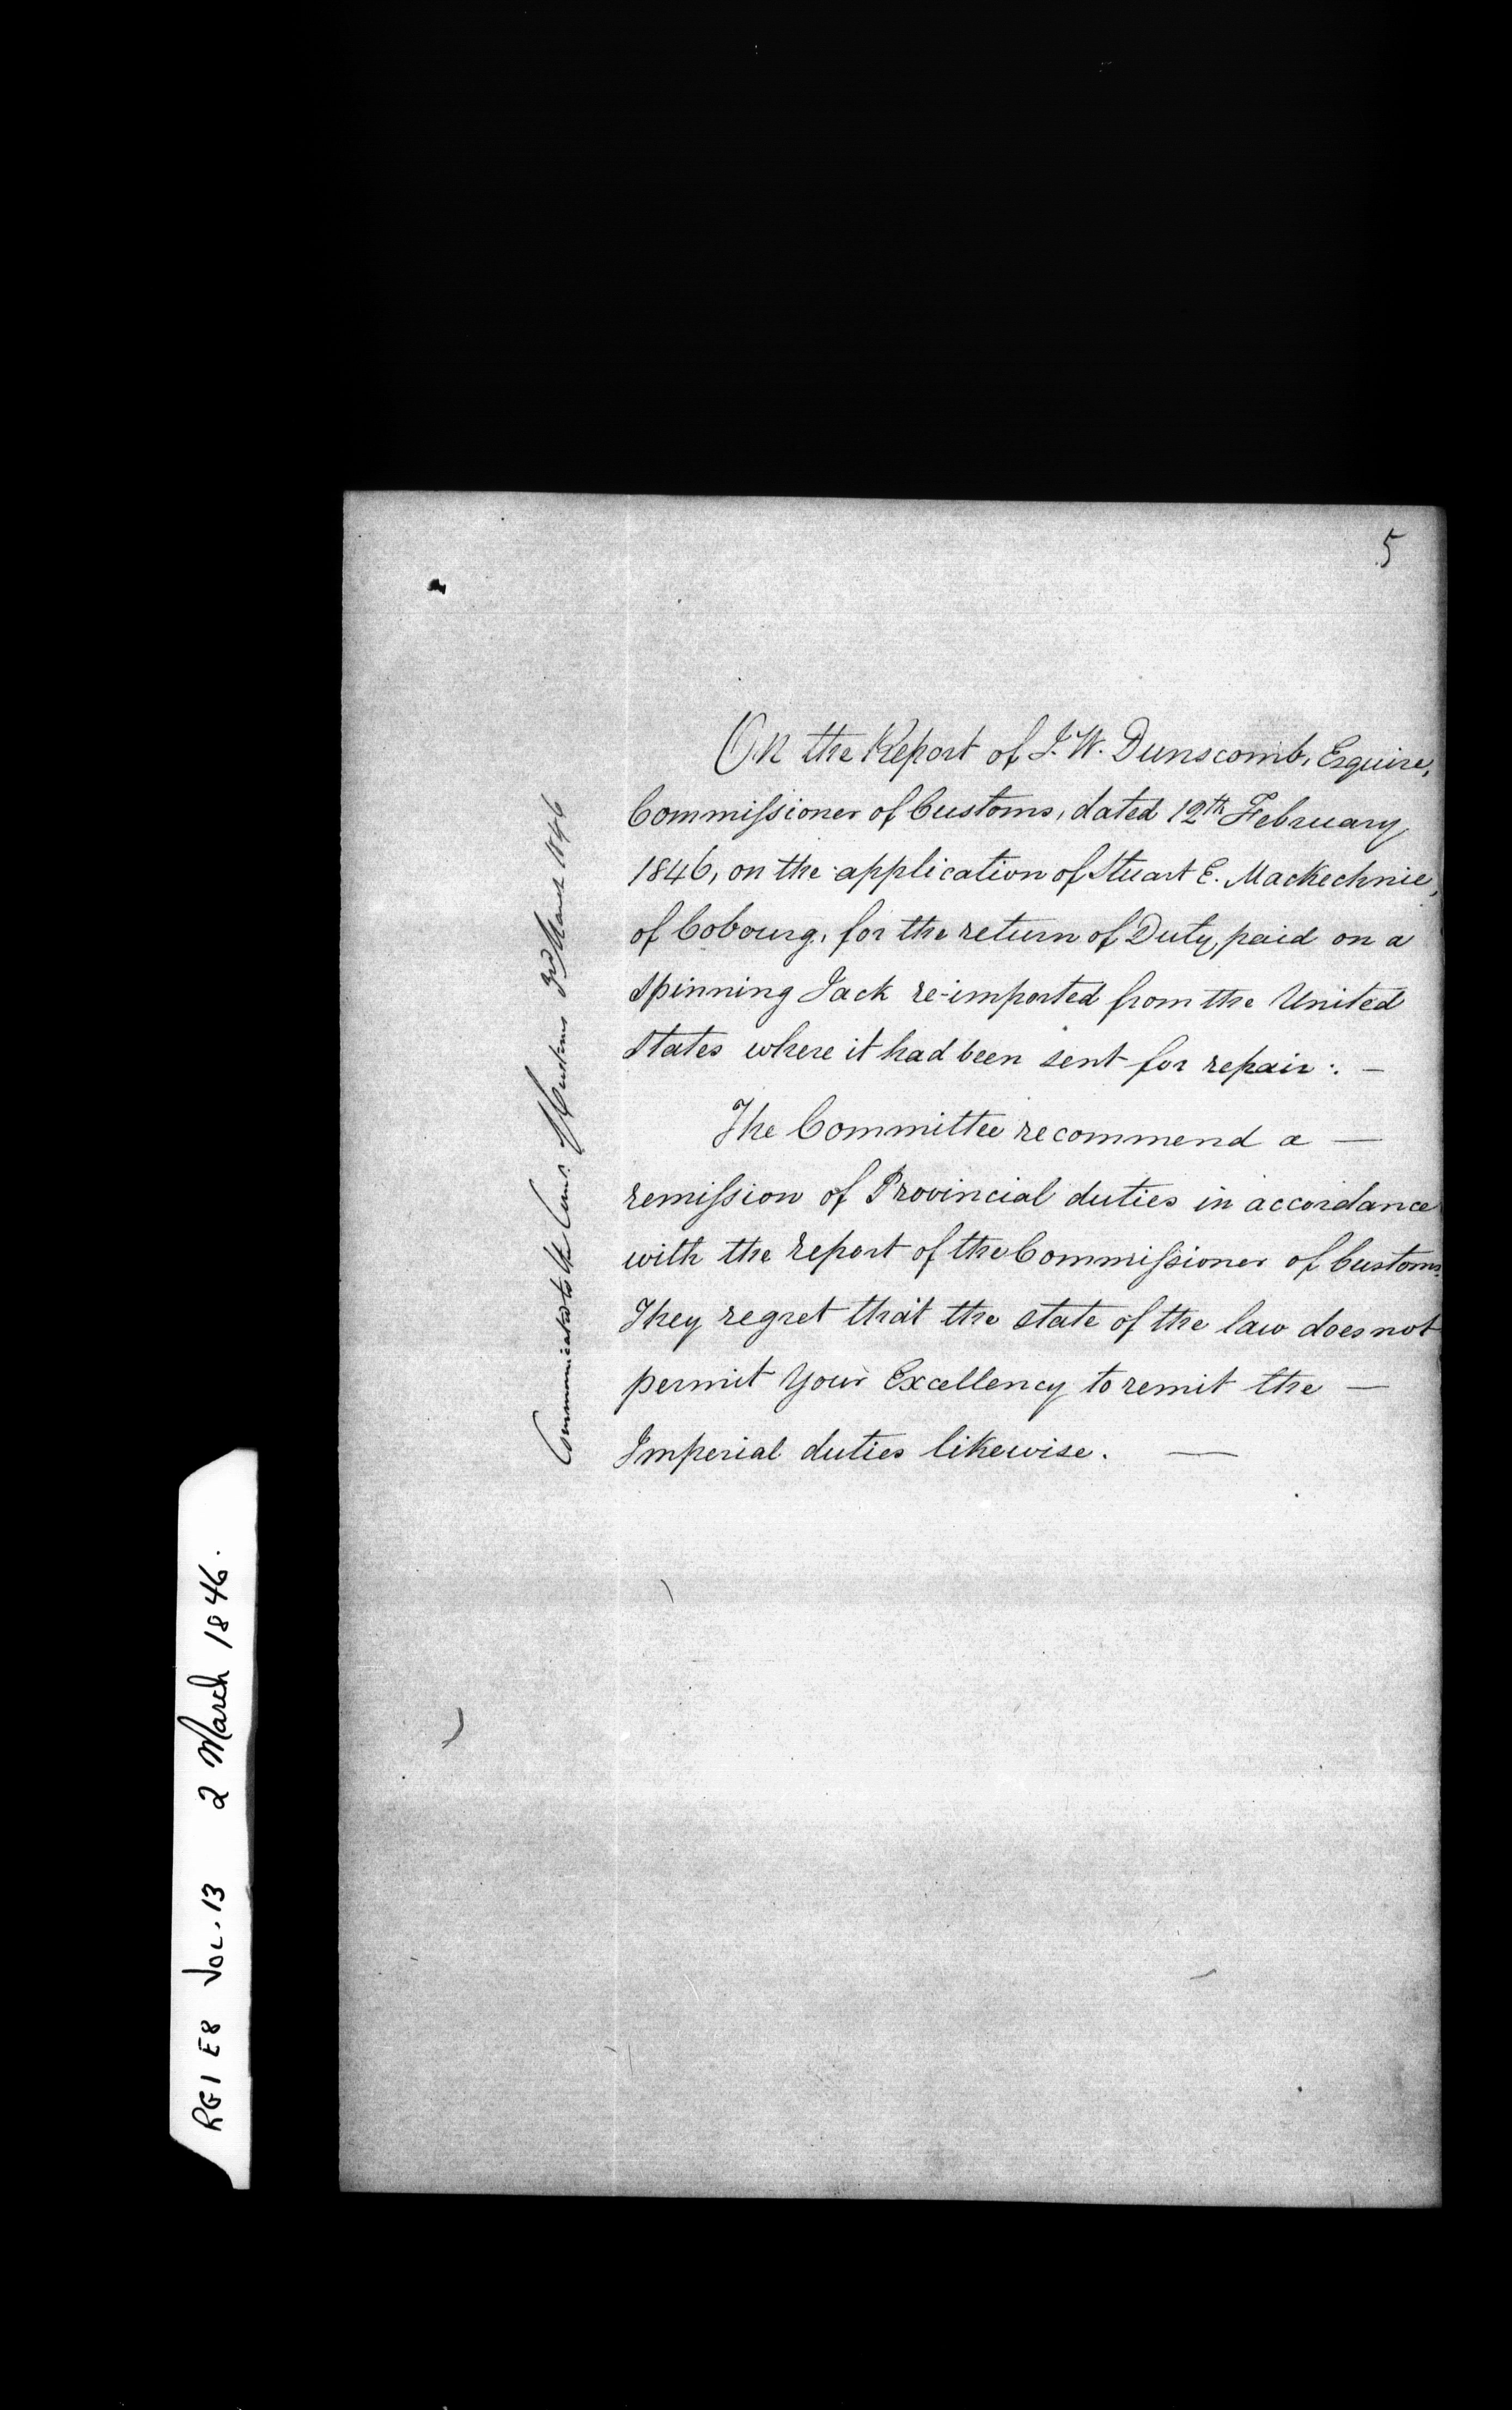 5
On the Report of J. W. Dunscomb, Esquire,
Commissioner of Customs, dated 12th February
1846, on the application of Stuart E. Mackechnie,
of Cobourg, for the return of Duty, paid on a
Spinning Jack re-imported from the United
States where it had been sent for repair :. —
The Committee recommend a —
remission of Provincial duties in accordance
with the report of the Commissioner of Customs.
They regret that the state of the law does not
permit Your Excellency to remit the —
Imperial duties likewise. —
Communicated to the Comr. of Customs 3rd March 1846
RG1 E8 VOL. 13 2 March 1846.